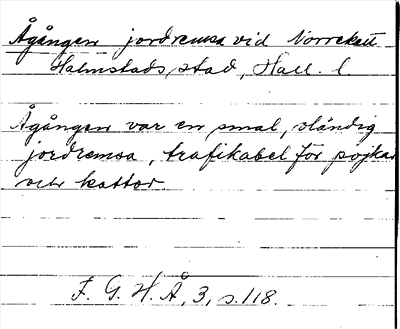 Ågången jordremsa vid Norrekatt
Halmstads stad, Hall. l
Ågången var en smal, oländig
jordremsa, trafikabel för pojkar
och kattor
F. G. H. Å, 3, s. 118.